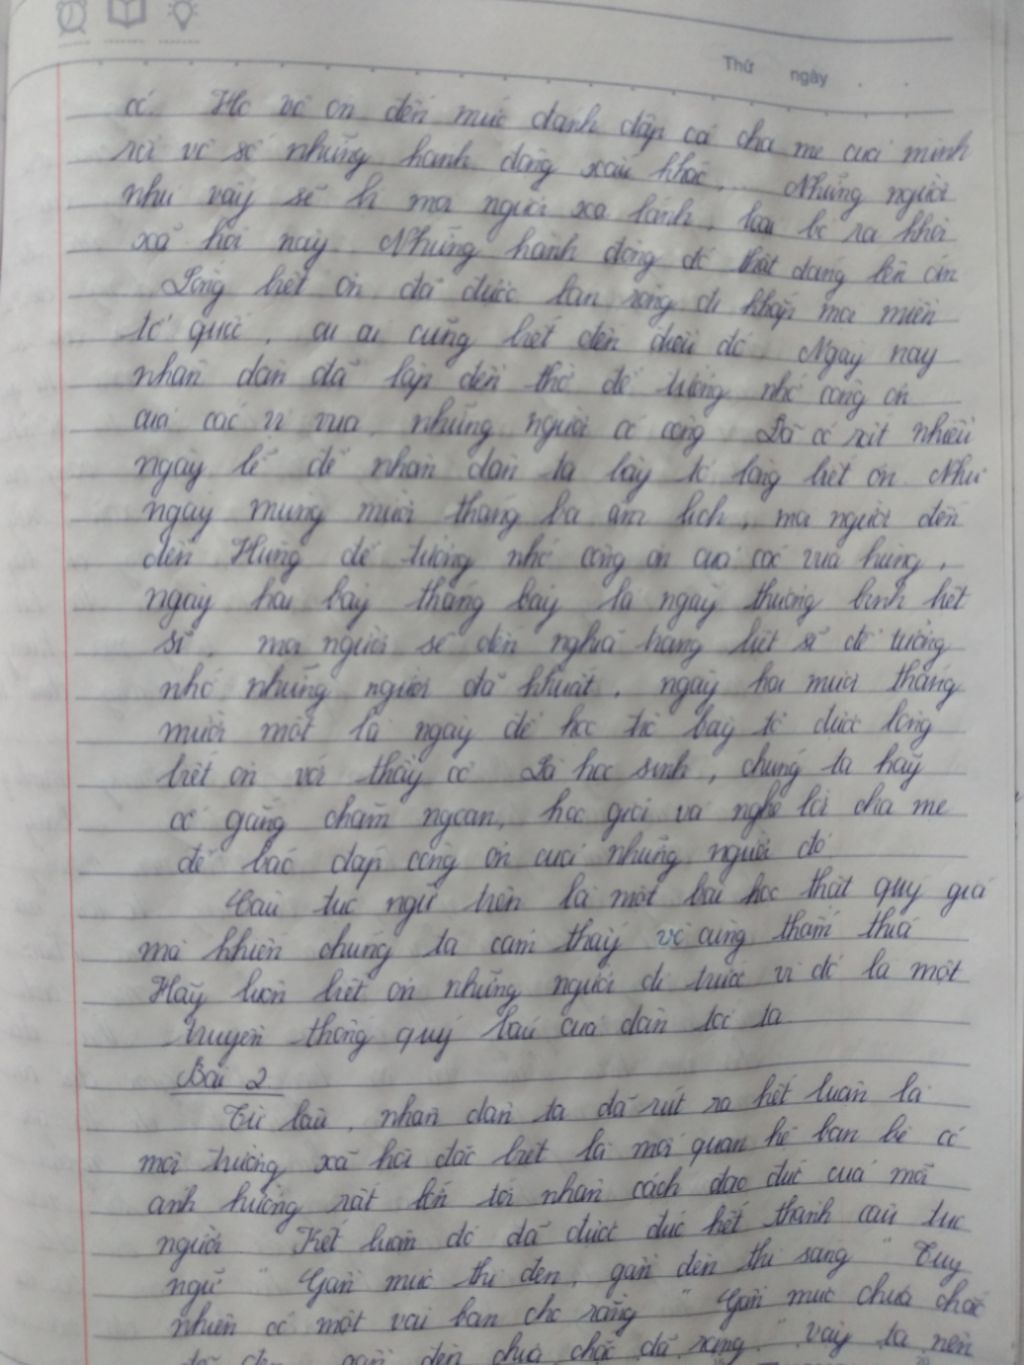 Thứ ngày
có. Họ vô ơn đến mức đánh đập cả cha mẹ của mình
rồi vô số những hành động xấu khác... Những người
như vậy sẽ bị mọi người xa lánh, loại bỏ ra khỏi
xã hội này. Những hành động đó thật đáng lên án
Lòng biết ơn đã được lan rộng đi khắp mọi miền
tổ quốc, ai ai cũng biết đến điều đó. Ngày nay
nhân dân đã lập đền thờ để tưởng nhớ công ơn
của các vị vua, những người có công. Đã có rất nhiều
ngày lễ để nhân dân ta bày tỏ lòng biết ơn. Như
ngày mùng mười tháng ba âm lịch, mọi người đến
đền Hùng để tưởng nhớ công ơn của các vua hùng,
ngày hai bảy tháng bảy là ngày thương binh liệt
sĩ, mọi người sẽ đến nghĩa trang liệt sĩ để tưởng
nhớ những người đã khuất, ngày hai mươi tháng
mười một là ngày để học trò bày tỏ được lòng
biết ơn với thầy cô. Là học sinh, chúng ta hãy
cố gắng chăm ngoan, học giỏi và nghe lời cha mẹ
để báo đáp công ơn của những người đó
Câu tục ngữ trên là một bài học thật quý giá
mà khiến chúng ta cảm thấy vô cùng thấm thía
Hãy luôn biết ơn những người đi trước vì đó là một
truyền thống quý báu của dân tộc ta
Bài 2
Từ lâu, nhân dân ta đã rút ra kết luận là
môi trường xã hội đặc biệt là mối quan hệ bạn bè có
ảnh hưởng rất lớn tới nhân cách đạo đức của mỗi
người. Kết luận đó đã được đúc kết thành câu tục
ngữ "Gần mực thì đen, gần đèn thì sáng" Tuy
nhiên có một vài bạn cho rằng "Gần mực chưa chắc
đã đen, gần đèn chưa chắc đã sáng." vậy ta nên